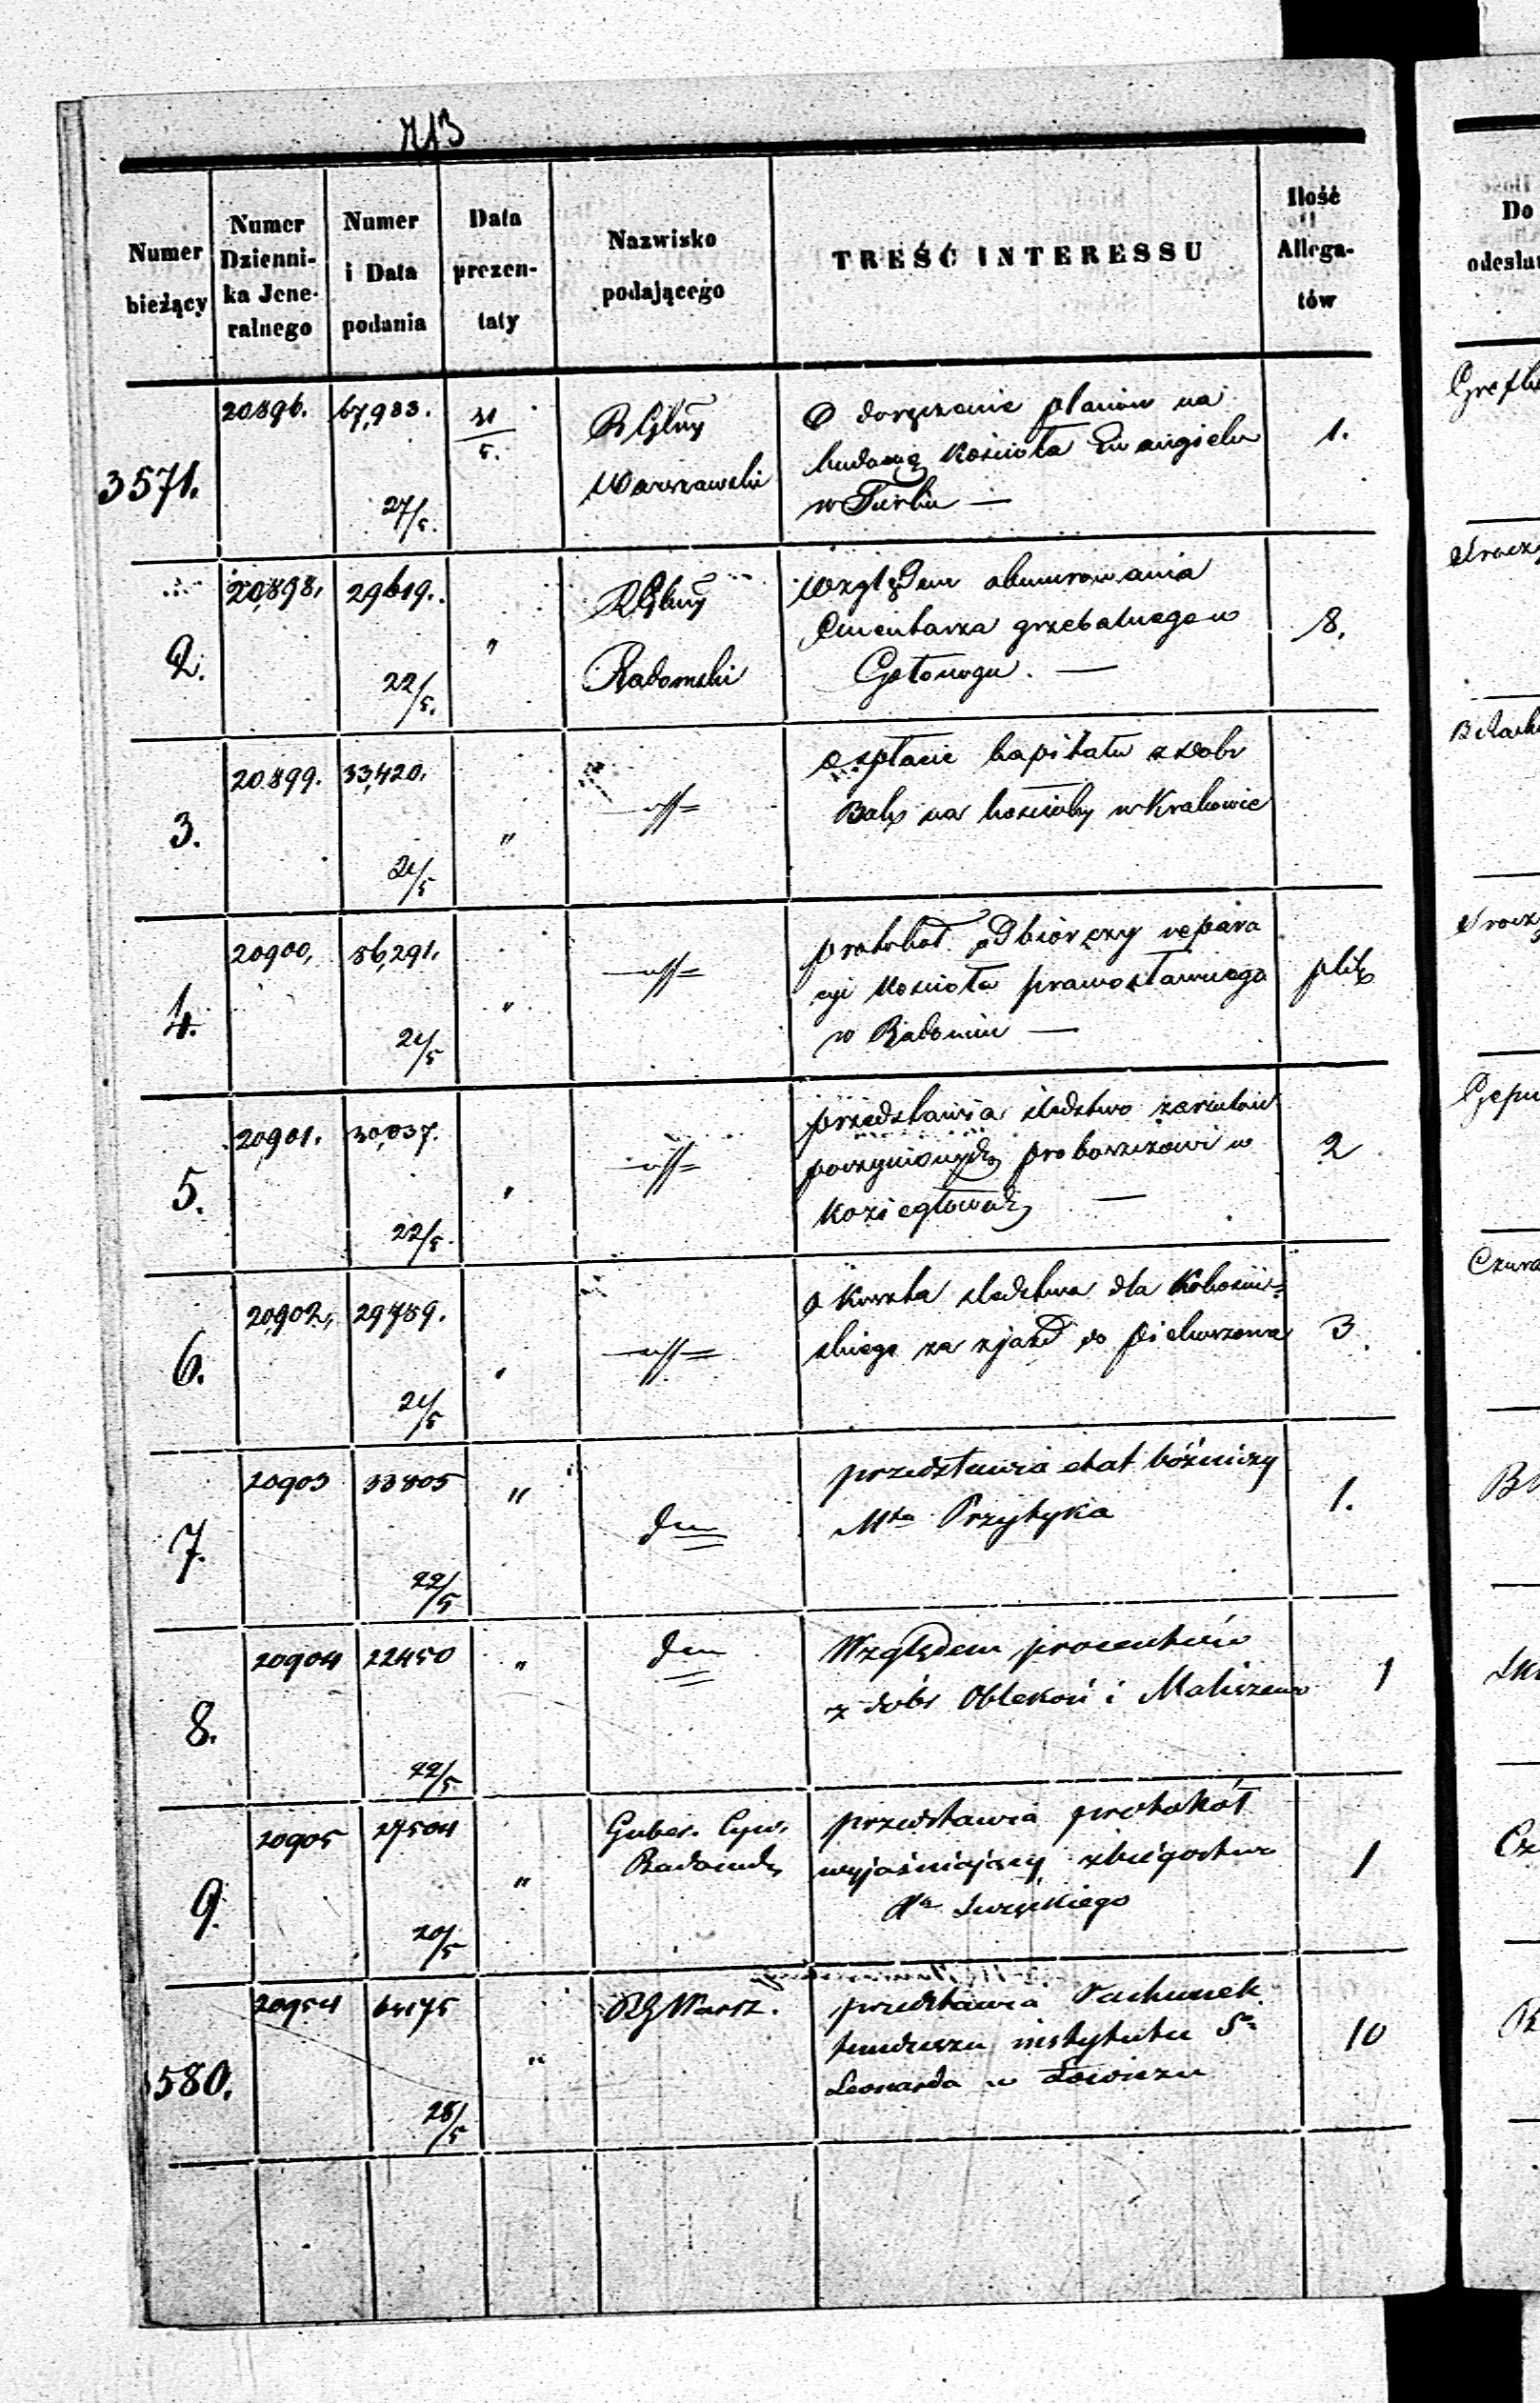 713
Numer bieżący
Numer Dzienni-ka Jene-ralnego
Numer i Data podania
Data prezen-taty
Nazwisko podającego
TREŚĆ INTERESSU
Ilość Allega-tów
Do
3571.
20896.
67,983.
27/5.
31/5.
R Gbny
Warszawski
O doręczenie planów na
budowę Kościoła Ewangielu
w Turku —
1.
2.
20,898.
29619.
22/5.
"
R Gbny
Radomski
Względem obmurowania
Cmentarza grzebalnego w
Gołonogu. —
8.
3.
20899.
33,420.
21/5
"
O spłacie kapitału z dobr
na kościoły w Krakowie
4.
20900,
36,291.
21/5
"
protokół odbiorczy repara
cyi Kościoła prawosławnego
w Radomiu —
plik
5.
20,901.
30,037.
22/5.
"
przedstawia śledztwo zarzutów
poczynionych proboszczowi w
Koziegłowach —
2
6.
20,902,
29789.
21/5
"
O Koszta śledztwa dla
skiego za zjazd do
3.
7.
20903
33805
22/5
"
dto
przedstawia etat bóźniczy
Mta Przytyka
1.
8.
20904
22450
22/5
"
dto
Względem procentów
z dóbr Oblekoń i Maliszewo
1
9.
20905
27504
20/5
"
Guber. Cyw.
Radomski
przedstawia protokół
wyjaśniający zbiegostwo
Xa
1
580.
20954
64175
28/5
"
RG Warsz.
przedstawia Rachunek
funduszu instytutu Sgo
Leonarda w Łowiczu
10